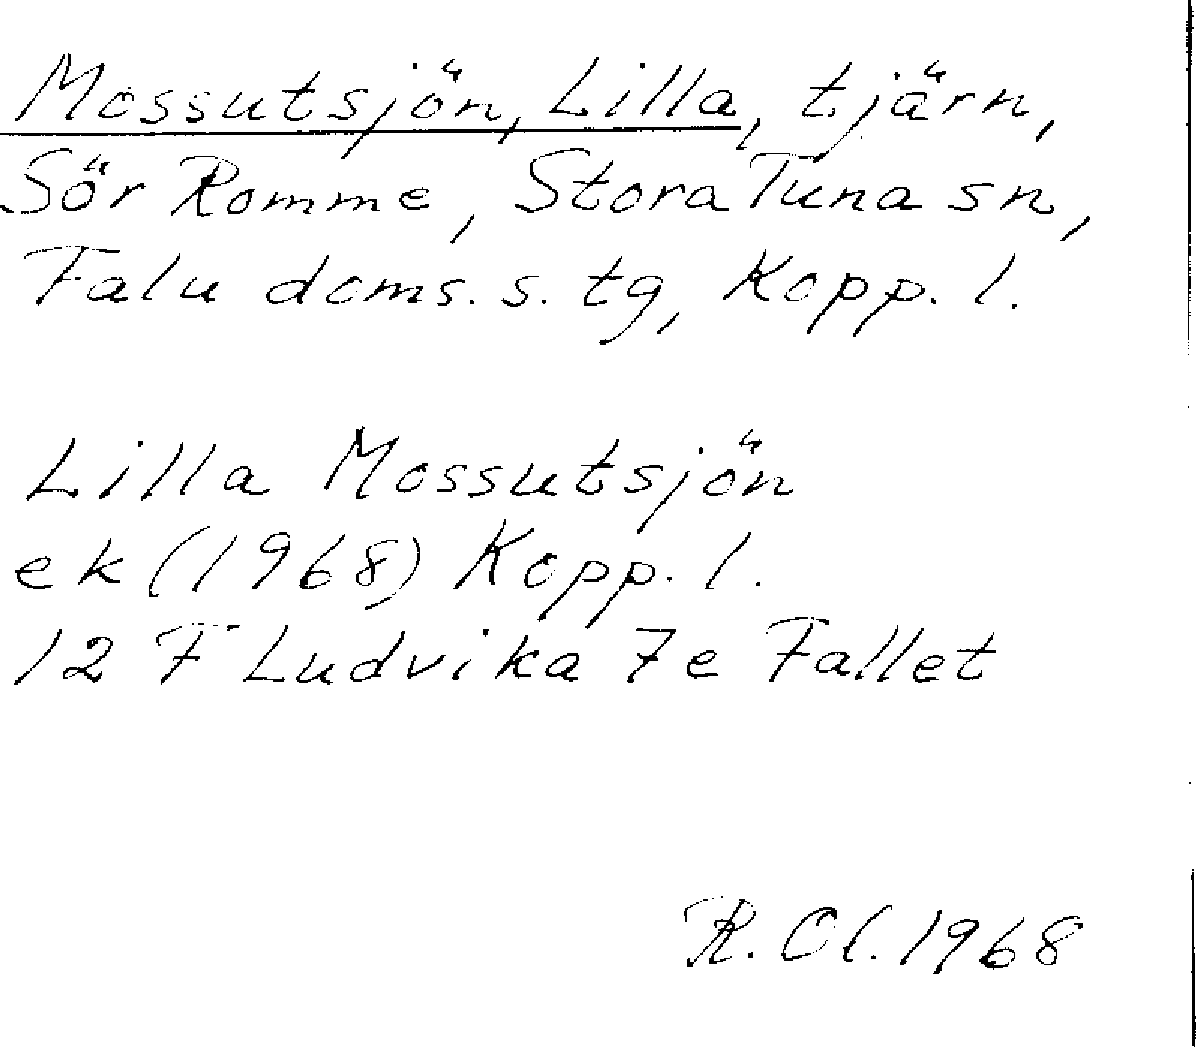 Mossutsjön, Lilla, tjärn,
Sör Romme, Stora Tuna sn,
Falu doms. s. tg, Kopp. l.
Lilla Mossutsjön
ek (1968) Kopp. l.
12 F Ludvika 7e Fallet
R. Ol. 1968